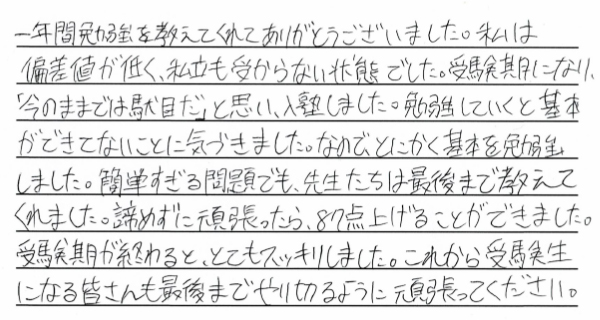 一年間勉強を教えてくれてありがとうございました。私は
偏差値が低く、私立も受からない状態でした。受験期になり、
「今のままでは駄目だ」と思い、入塾しました。勉強していくと基本
ができてないことに気づきました。なので、とにかく基本を勉強
しました。簡単すぎる問題でも、先生たちは最後まで教えて
くれました。諦めずに頑張ったら、87点上げることができました。
受験期が終わると、とてもスッキリしました。これから受験生
になる皆さんも最後までやり切るように頑張ってください。